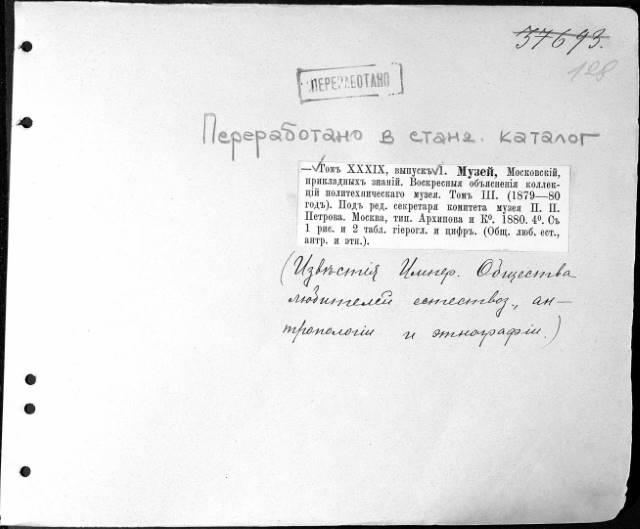 37693.
128
ПЕРЕРАБОТАНО
Переработано в станд. каталог
—Томъ XXXIX, выпускъ 1. Музей, Московскій,
прикладныхъ знаній. Воскресныя объясненія коллек-
цій политехническаго музея. Томъ III. (1879—80
годъ). Подъ ред. секретаря комитета музея П. П.
Петрова. Москва, тип. Архипова и К⁰. 1880. 4⁰. Съ
1 рис. и 2 табл. гіерогл. и цифръ. (Общ. люб. ест.,
антр. и этн.).
(Извѣстія Импер. Общества
любителей естествоз., ан-
тропологіи и этнографіи.)